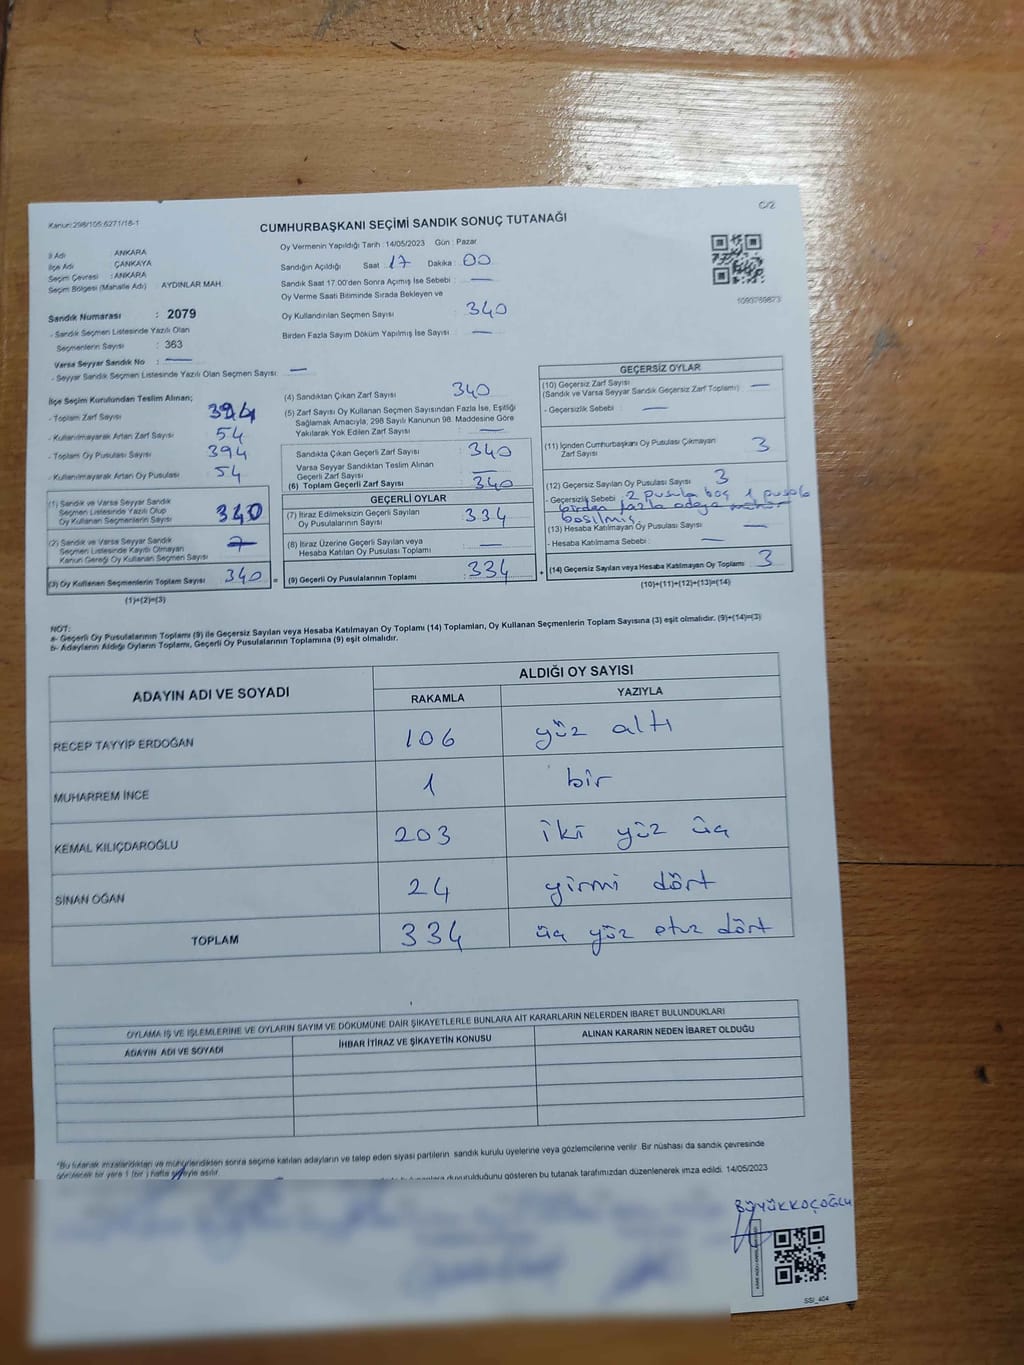 Kanun:298/105:6271/18-1
C/2
CUMHURBAŞKANI SEÇİMİ SANDIK SONUÇ TUTANAĞI
İl Adı : ANKARA
İlçe Adı : ÇANKAYA
Seçim Çevresi : ANKARA
Seçim Bölgesi (Mahalle Adı) : AYDINLAR MAH.
Sandık Numarası : 2079
- Sandık Seçmen Listesinde Yazılı Olan
Seçmenlerin Sayısı : 363
Varsa Seyyar Sandık No : —
- Seyyar Sandık Seçmen Listesinde Yazılı Olan Seçmen Sayısı: —
Oy Vermenin Yapıldığı Tarih : 14/05/2023 Gün : Pazar
Sandığın Açıldığı Saat 17 Dakika : 00
Sandık Saat 17.00'den Sonra Açılmış İse Sebebi : —
Oy Verme Saati Bitiminde Sırada Bekleyen ve
Oy Kullandırılan Seçmen Sayısı : 340
Birden Fazla Sayım Döküm Yapılmış İse Sayısı : —
1093769873
İlçe Seçim Kurulundan Teslim Alınan;
- Toplam Zarf Sayısı 394
- Kullanılmayarak Artan Zarf Sayısı 54
- Toplam Oy Pusulası Sayısı 394
- Kullanılmayarak Artan Oy Pusulası 54
(1) Sandık ve Varsa Seyyar Sandık
Seçmen Listesinde Yazılı Olup
Oy Kullanan Seçmenlerin Sayısı 340
(2) Sandık ve Varsa Seyyar Sandık
Seçmen Listesinde Kayıtlı Olmayan
Kanun Gereği Oy Kullanan Seçmen Sayısı
(3) Oy Kullanan Seçmenlerin Toplam Sayısı 340 =
(1)+(2)=(3)
(4) Sandıktan Çıkan Zarf Sayısı 340
(5) Zarf Sayısı Oy Kullanan Seçmen Sayısından Fazla İse, Eşitliği
Sağlamak Amacıyla, 298 Sayılı Kanunun 98. Maddesine Göre
Yakılarak Yok Edilen Zarf Sayısı : —
Sandıkta Çıkan Geçerli Zarf Sayısı : 340
Varsa Seyyar Sandıktan Teslim Alınan
Geçerli Zarf Sayısı : —
(6) Toplam Geçerli Zarf Sayısı : 340
GEÇERLİ OYLAR
(7) İtiraz Edilmeksizin Geçerli Sayılan
Oy Pusulalarının Sayısı : 334
(8) İtiraz Üzerine Geçerli Sayılan veya
Hesaba Katılan Oy Pusulası Toplamı : —
(9) Geçerli Oy Pusulalarının Toplamı : 334 +
GEÇERSİZ OYLAR
(10) Geçersiz Zarf Sayısı
(Sandık ve Varsa Seyyar Sandık Geçersiz Zarf Toplamı) —
- Geçersizlik Sebebi : —
(11) İçinden Cumhurbaşkanı Oy Pusulası Çıkmayan
Zarf Sayısı 3
(12) Geçersiz Sayılan Oy Pusulası Sayısı 3
- Geçersizlik Sebebi 2 pusula boş 1 pusula
birden fazla adaya
basılmış
(13) Hesaba Katılmayan Oy Pusulası Sayısı —
- Hesaba Katılmama Sebebi : —
(14) Geçersiz Sayılan veya Hesaba Katılmayan Oy Toplamı 3
(10)+(11)+(12)+(13)=(14)
NOT:
a- Geçerli Oy Pusulalarının Toplamı (9) ile Geçersiz Sayılan veya Hesaba Katılmayan Oy Toplamı (14) Toplamları, Oy Kullanan Seçmenlerin Toplam Sayısına (3) eşit olmalıdır. (9)+(14)=(3)
b- Adayların Aldığı Oyların Toplamı, Geçerli Oy Pusulalarının Toplamına (9) eşit olmalıdır.
ADAYIN ADI VE SOYADI ALDIĞI OY SAYISI
RAKAMLA YAZIYLA
RECEP TAYYİP ERDOĞAN 106 yüz altı
MUHARREM İNCE 1 bir
KEMAL KILIÇDAROĞLU 203 iki yüz üç
SİNAN OĞAN 24 yirmi dört
TOPLAM 334 üç yüz otuz dört
OYLAMA İŞ VE İŞLEMLERİNE VE OYLARIN SAYIM VE DÖKÜMÜNE DAİR ŞİKAYETLERLE BUNLARA AİT KARARLARIN NELERDEN İBARET BULUNDUKLARI
ADAYIN ADI VE SOYADI İHBAR İTİRAZ VE ŞİKAYETİN KONUSU ALINAN KARARIN NEDEN İBARET OLDUĞU
*Bu tutanak imzalandıktan ve mühürlendikten sonra seçime katılan adayların ve talep eden siyasi partilerin sandık kurulu üyelerine veya gözlemcilerine verilir. Bir nüshası da sandık çevresinde
görülecek bir yere 1 (bir) hafta süreyle asılır.
duyurulduğunu gösteren bu tutanak tarafımızdan düzenlenerek imza edildi. 14/05/2023
BÜYÜKKOÇOĞLU
SSI_404